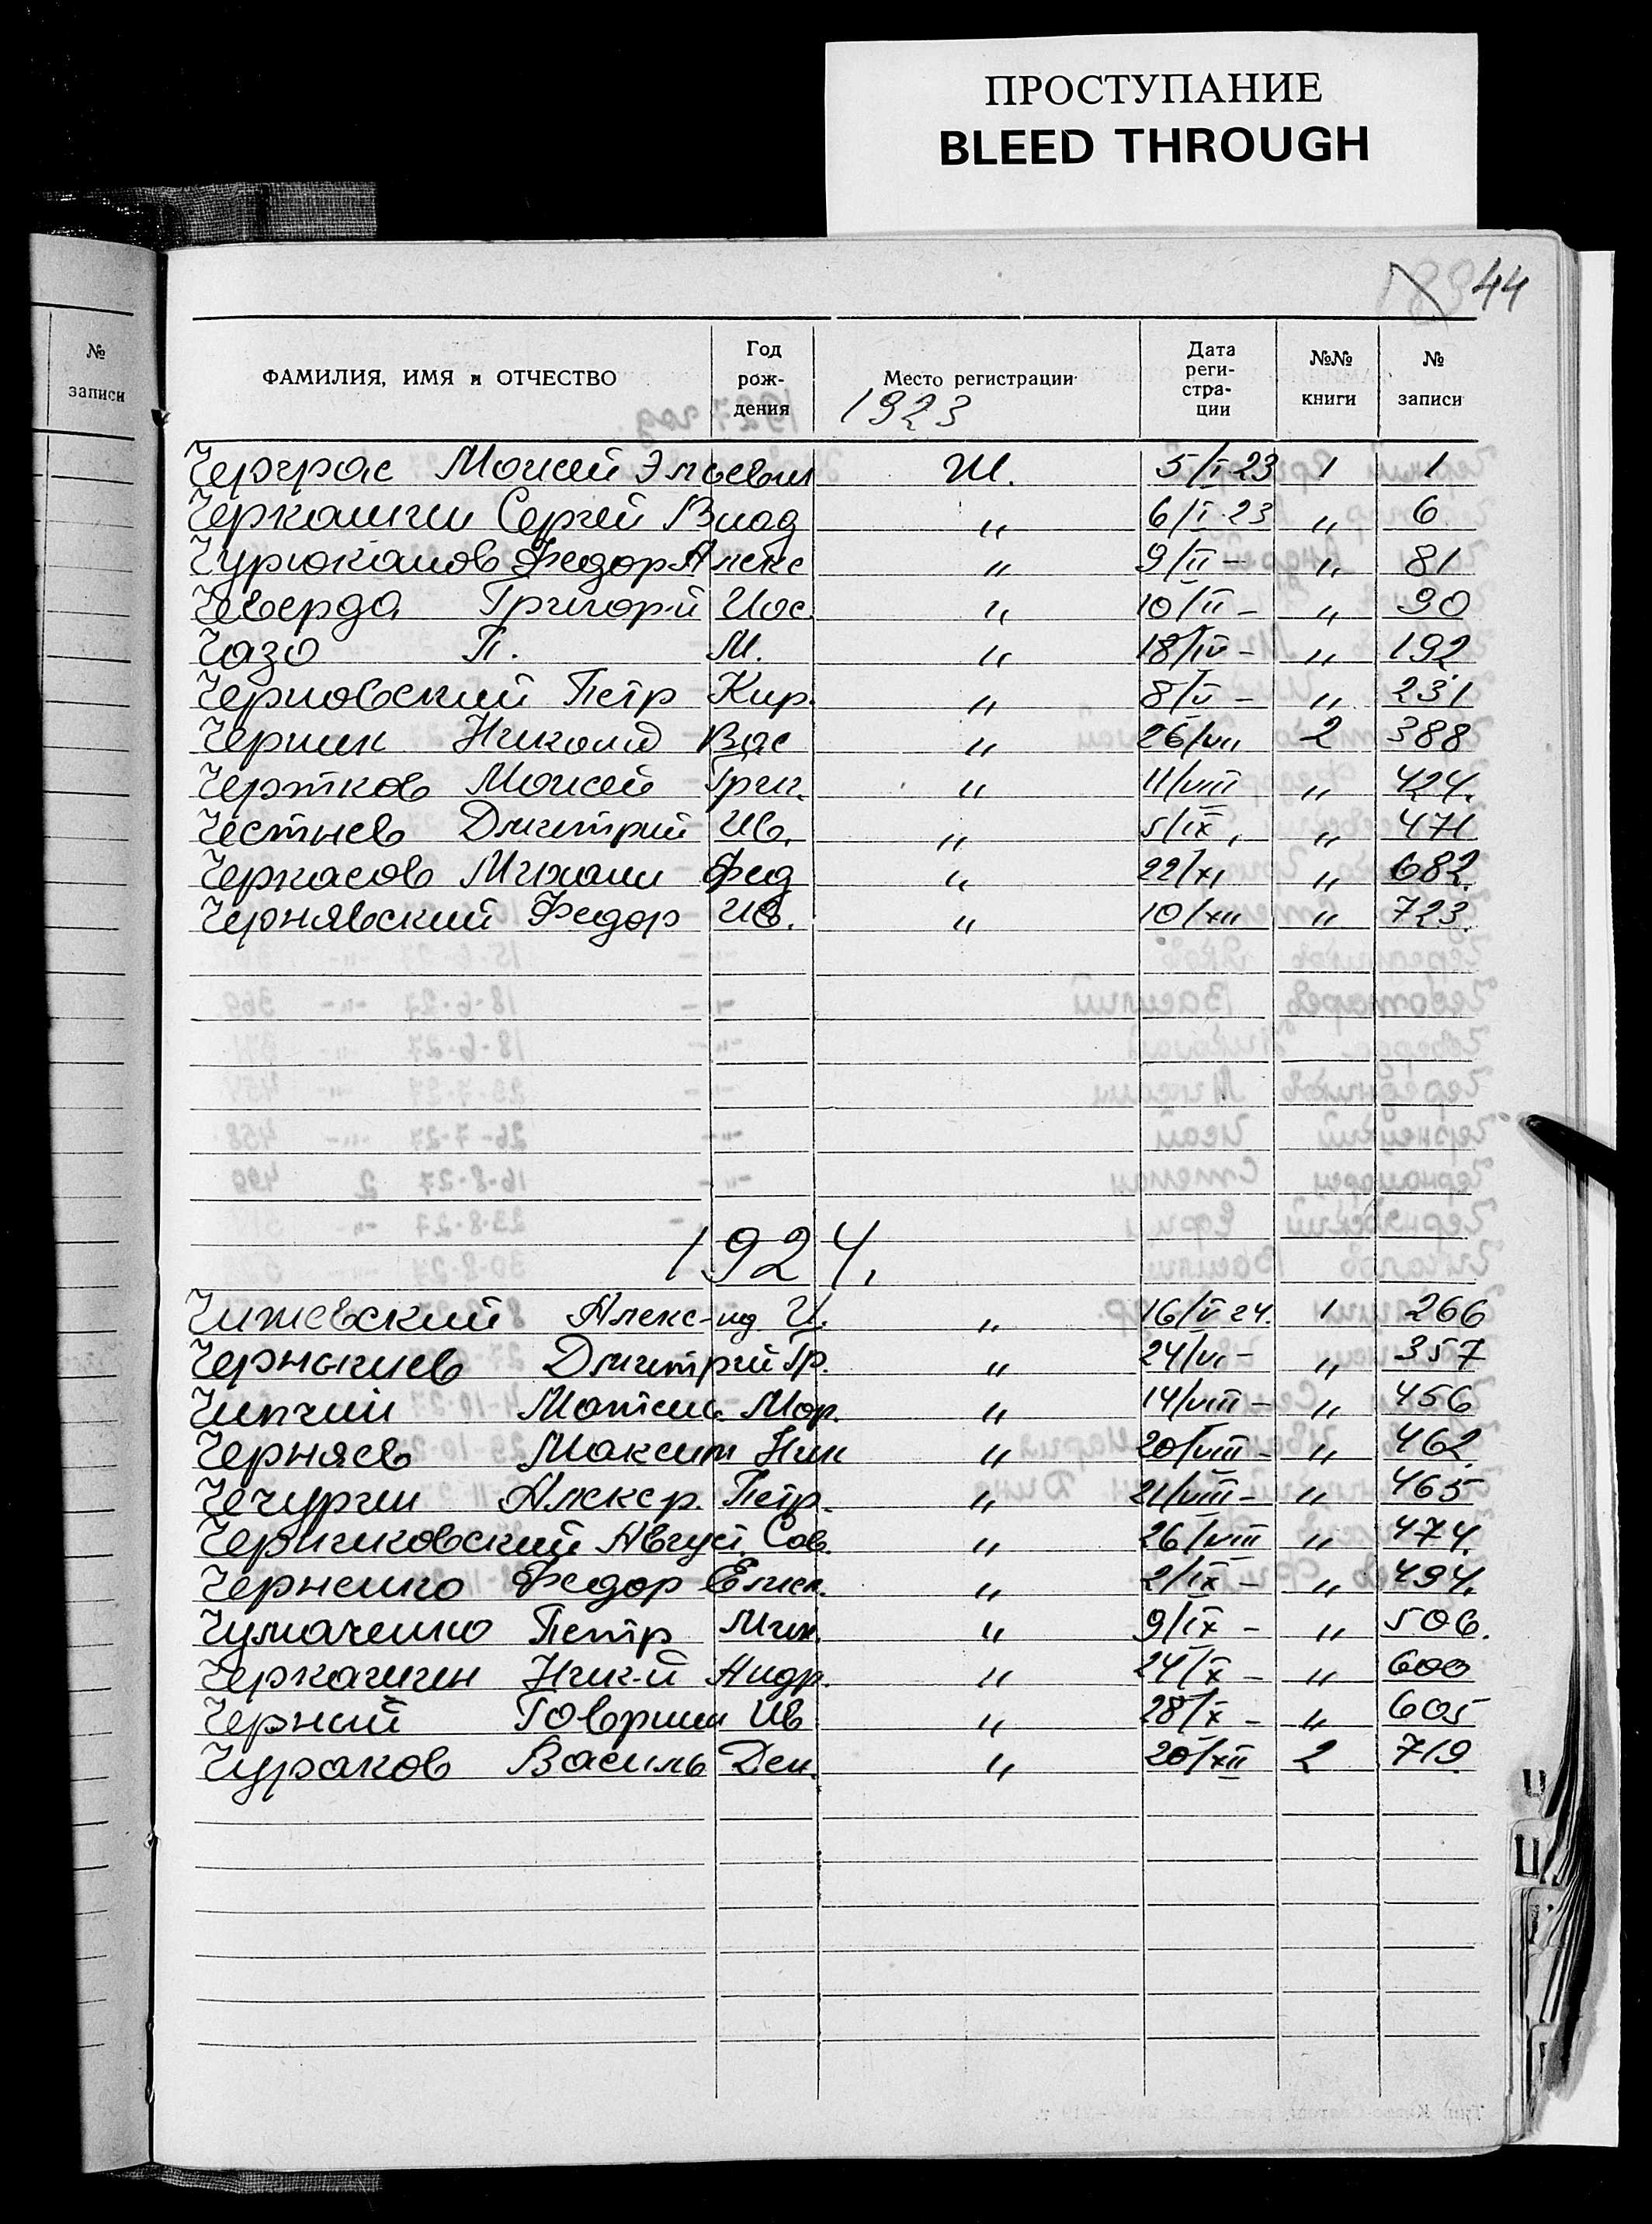 ПРОСТУПАНИЕ
BLEED THROUGH
44
№ записи
ФАМИЛИЯ, ИМЯ и ОТЧЕСТВО Год рож-дения Место регистрации Дата реги-стра-ции №№ книги № записи
1923
Моисей Эльевич Ш. 5/I-23 1 1
Черкашин Сергей Влад " 6/I-23 " 6
Чурюканов Федор Алекс " 9/II - " 81
Чеверда Григорий Иос. " 10/II - " 90
Чазо П. М. " 18/IV - " 192
Черновский Петр Кир. " 8/V - " 231
Черник Николай Вас " 26/VII 2 388
Чертков Моисей Григ. " 11/VIII " 424.
Честнев Дмитрий Ив. " 5/IX, " 471
Черкасов Михаил Фед " 22/XI " 682.
Чернявский Федор Ив. " 10/XII " 723.
1924.
Чижевский Алекс-нд И. " 16/V 24. 1 266
Дмитрий Гр. " 24/VI - " 357
Мор. " 14/VIII - " 456
Черняев Максим Ник " 20/VIII - " 462.
Чечурин Алекср. Петр. " 21/VIII - " " 465
Август. Сав. " 26/VIII " 474.
Черненко Федор Елис. " 2/IX - " 494.
Чумаченко Петр Мих. " 9/IX - " 506.
Черкашин Ник-й Андр. " 24/X - " 600
Черный Говриил Ив " 28/X - " 605
Чураков Василь Ден. " 20/XII 2 719.